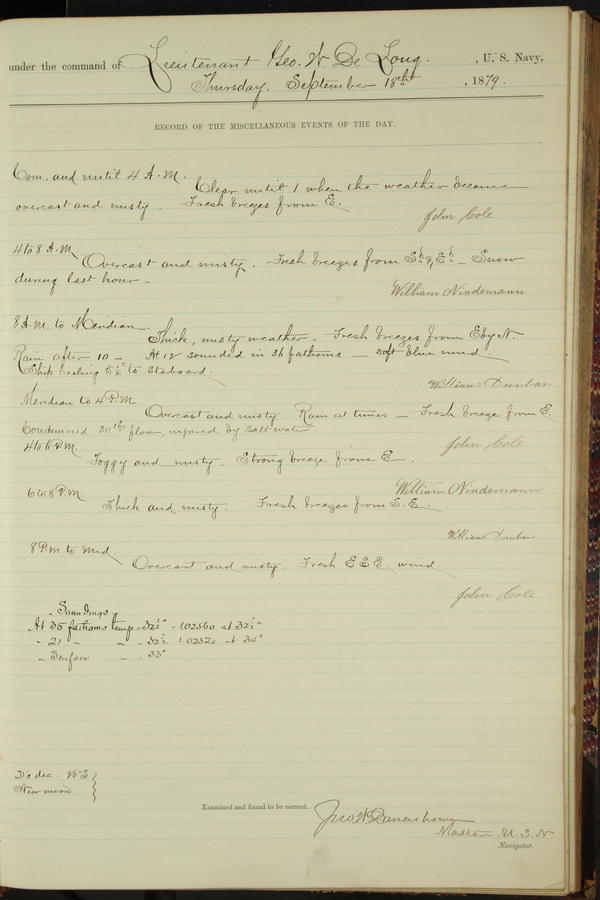 under the command of Lieutenant Geo. W. De Long. , U. S. Navy,
Thursday, September 18th , 1879.
RECORD OF THE MISCELLANEOUS EVENTS OF THE DAY.
Com. and until 4 A.M.
Clear until 1 when the weather became
overcast and misty. Fresh breezes from E.
John Cole
4 to 8 A.M.
Overcast and misty. Fresh breezes from Sd & Ed - Snow
during last hour -
William Nindemann
8 A.M. to Meridian
Thick, misty weather - Fresh breezes from E by N.
Rain after 10 - At 12 sounded in 36 fathoms - soft blue mud.
Ship heeling 5½° to starboard.
William Dunbar
Meridian to 4 P.M.
Overcast and misty Rain at times - Fresh breeze from E.
Condemned 30 lbs flour, injured by salt water
4 to 6 P.M.
John Cole
Foggy and misty. Strong breeze from E.
William Nindemann
6 to 8 P.M.
Thick and misty. Fresh breezes from S.E.
William Dunbar
8 P.M. to Mid.
Overcast and misty. Fresh E.S.E. wind.
John Cole
Soundings
At 35 fathoms temp. 32½° - 1.02560 at 32½°
" 21 " " - 32½ 1.02320 at 34°
" Surface - . 33°
dec.
New moon
Examined and found to be correct.
Jno. W. Danenhower
Master U. S. N.
Navigator.